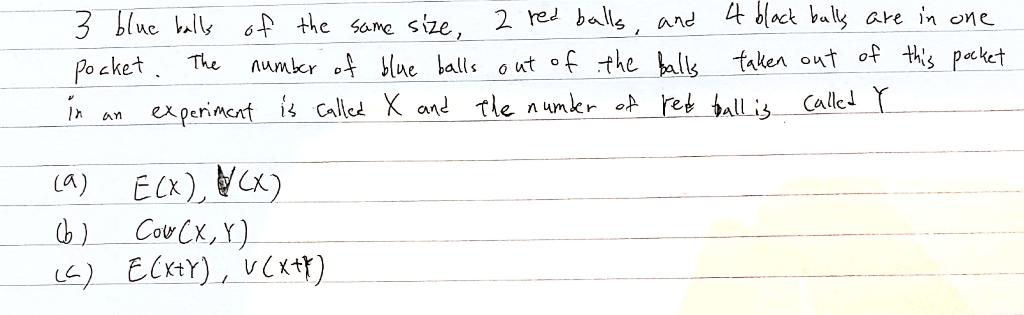 3 blue balls of the same size, 2 red balls, and 4 black balls are in one
pocket. The number of blue balls out of the balls taken out of this pocket
in an experiment is called X and the number of red ball is called Y
(a) E(X), V(X)
(b) Cov(X,Y)
(c) E(X+Y), V(X+Y)